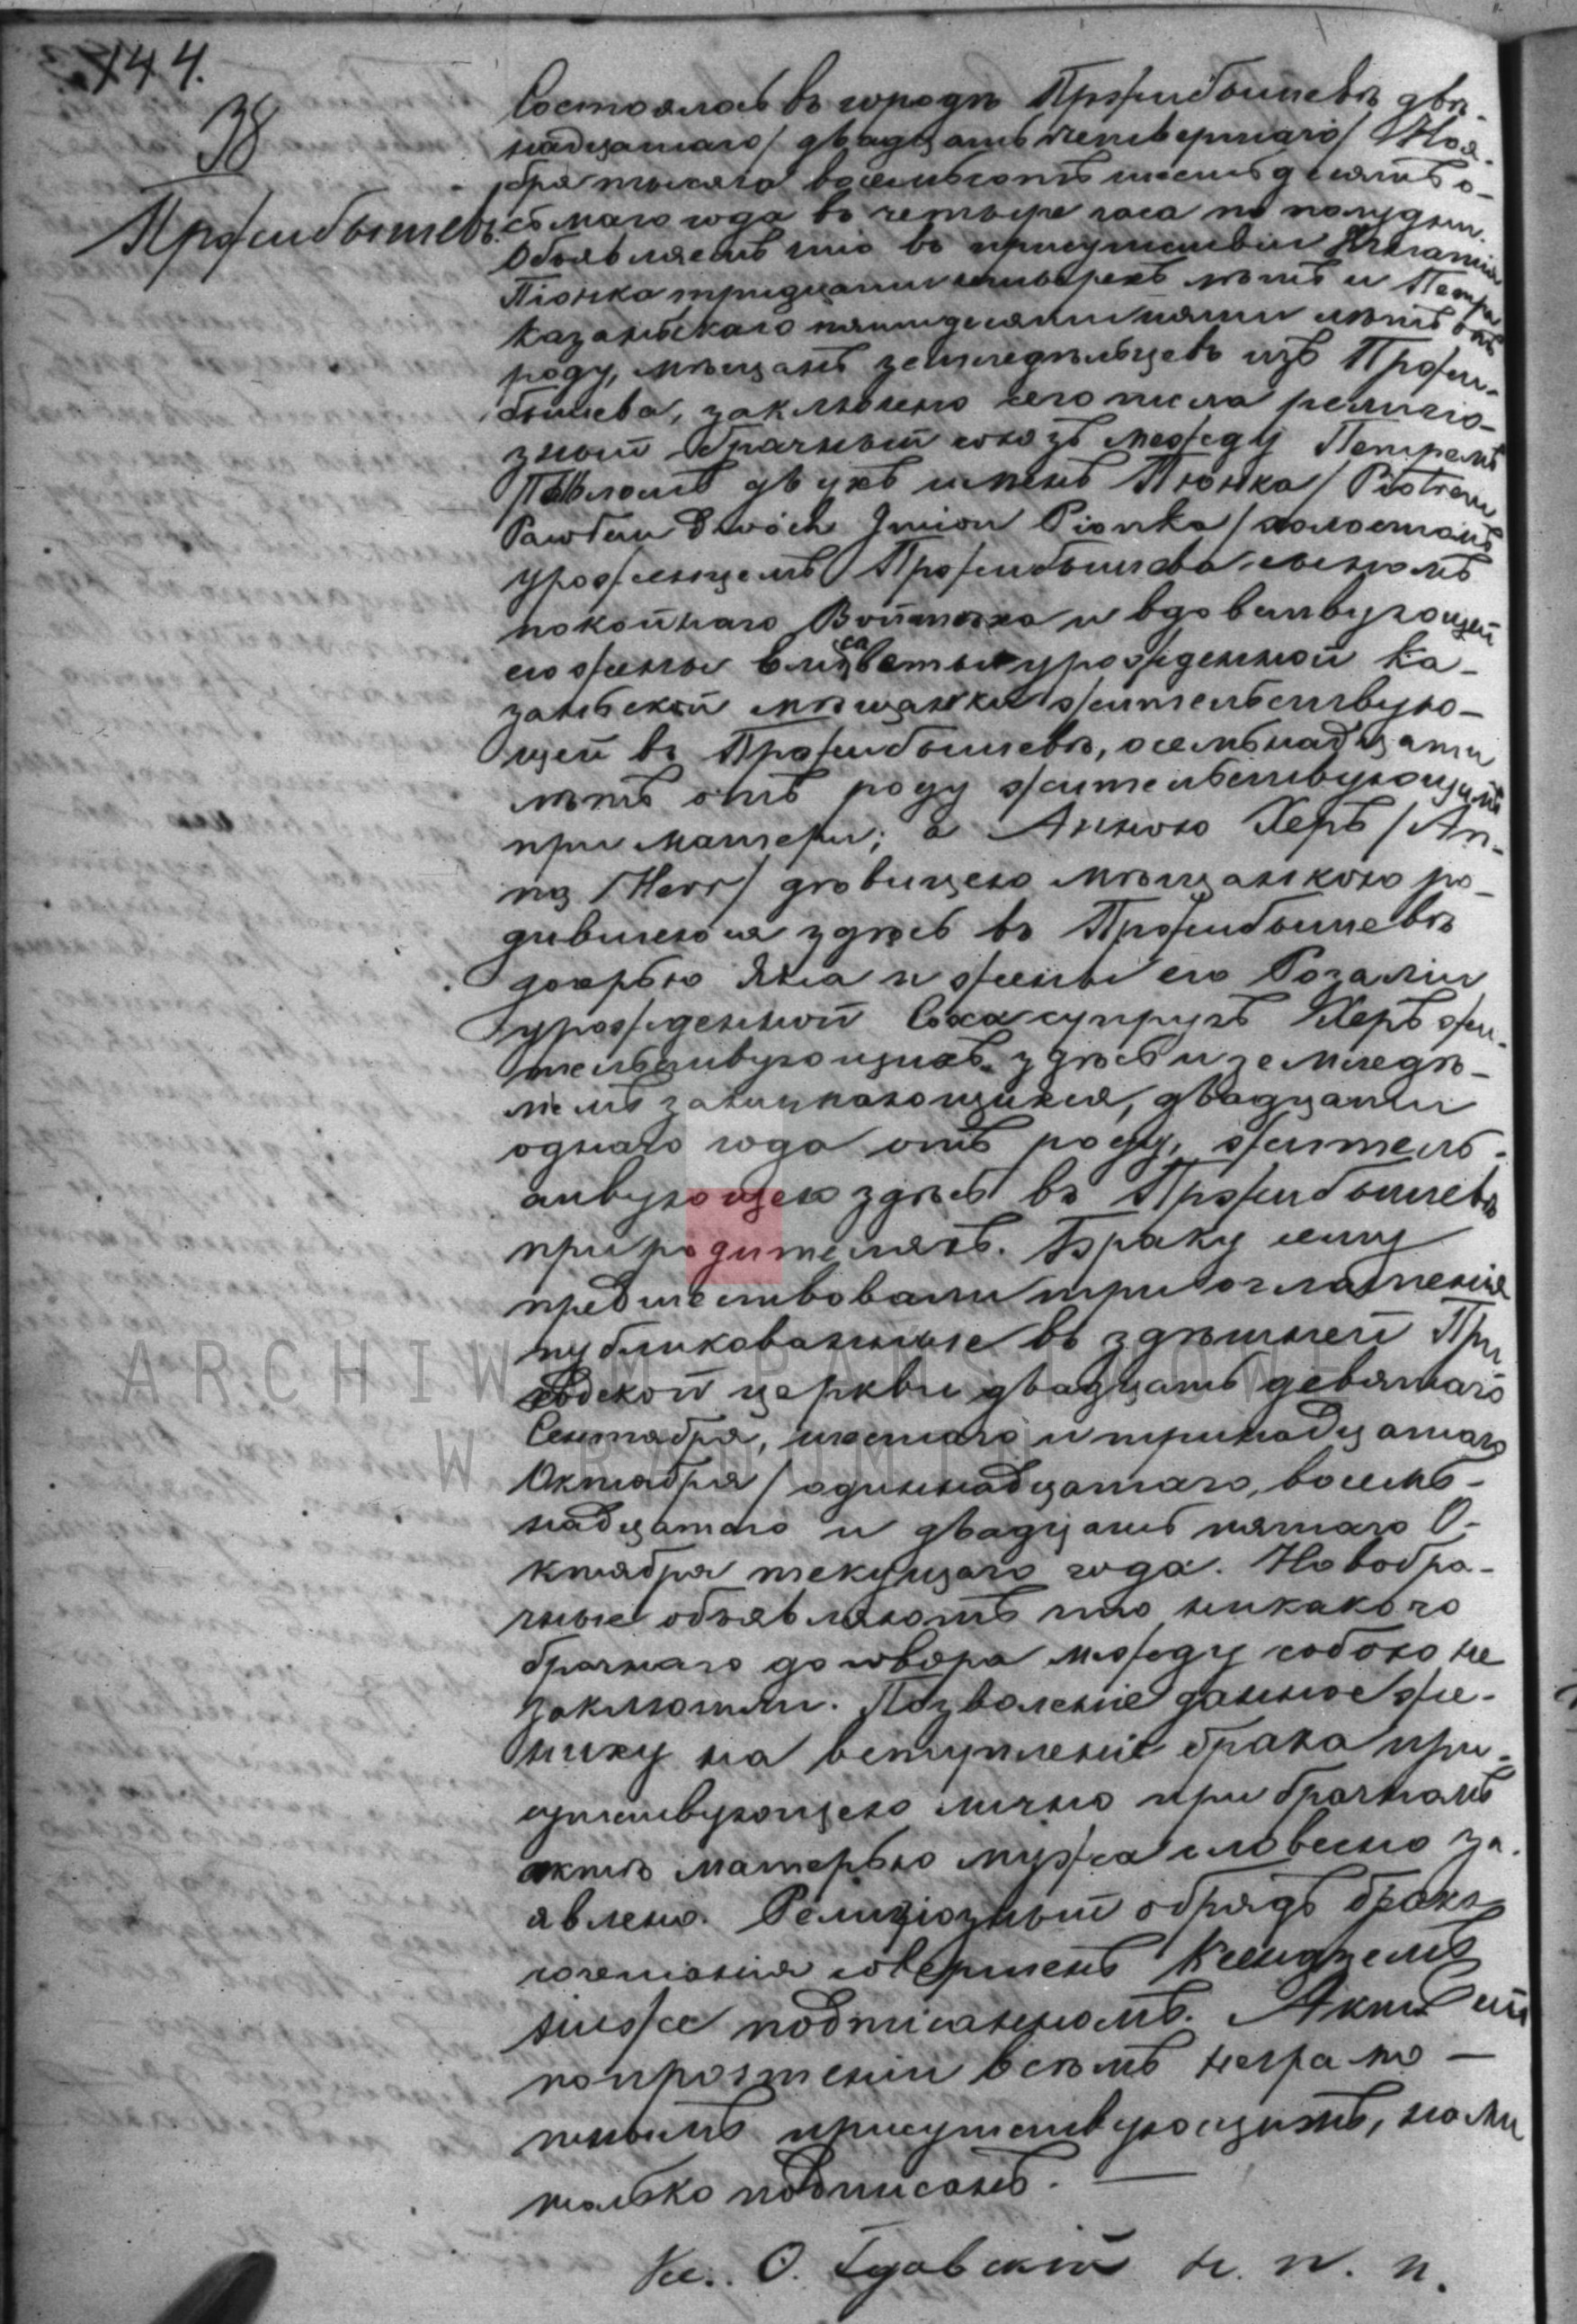 144.
38
Пржибышевъ.
Состоялось въ городѣ Пржибышевѣ двѣ-
надцатаго / двадцать четвертаго / Ноя-
бря тысяча восемьсотъ шестьдесятъ о-
сьмаго года въ четыре часа по полудни.
Объявляемъ что въ присутствіи Игнатія
Піонка тридцати четырехъ лѣтъ и Петра
Казаньскаго пятидесяти пяти лѣтъ отъ
роду, мѣщанъ земледѣльцевъ изъ Пржи-
бышева, заключено сего числа религіо-
зный брачный союзъ между Петремъ
Павломъ двухъ именъ Піонка / Piotrem
Pawłem dwóch Imion Pionka / холостымъ
урожденцемъ Пржибышева сыномъ
покойнаго Войтѣха и вдовствующей
его жены Елисаветы урожденной Ка-
заньской мѣщанки жительствую-
щей въ Пржибышевѣ, осемьнадцати
лѣтъ отъ роду жительствующимъ
при матери; а Анною Херъ / An-
ną Herr / дѣвицею мѣщанкою ро-
дившеюся здѣсь въ Пржибышевѣ
дочерью Яна и жены его Розаліи
урожденной Соха супругъ Херъ жи-
тельствующихъ здѣсь и земледѣ-
ліемъ занимающихся, двадцати
однаго года отъ роду, житель-
ствующею здѣсь въ Пржибышевѣ
при родителяхъ. Браку сему
предшествовали три оглашенія
публикованные въ здѣшней При-
ходской церкви двадцать девятаго
Сентября, шестаго и тринадцатаго
Октября / одиннадцатаго, восемь-
надцатаго и двадцать пятаго О-
ктября текущаго года. Новобра-
чные объявляютъ что никакого
брачнаго договора между собою не
заключили. Позволеніе данное же-
ниху на вступленіе брака при-
сутствующею лично при брачномъ
актѣ матерью мужа словесно за-
явлено. Религіозный обрядъ брако-
сочетанія совершенъ Ксендземъ
ниже подписаннымъ. Актъ сей
по прочтеніи всѣмъ неграмо-
тнымъ присутствующимъ, нами
только подписанъ. —
Кс. О. Гдовскій н. п. п.
ARCHIWUM PAŃSTWOWE
W RADOMIU